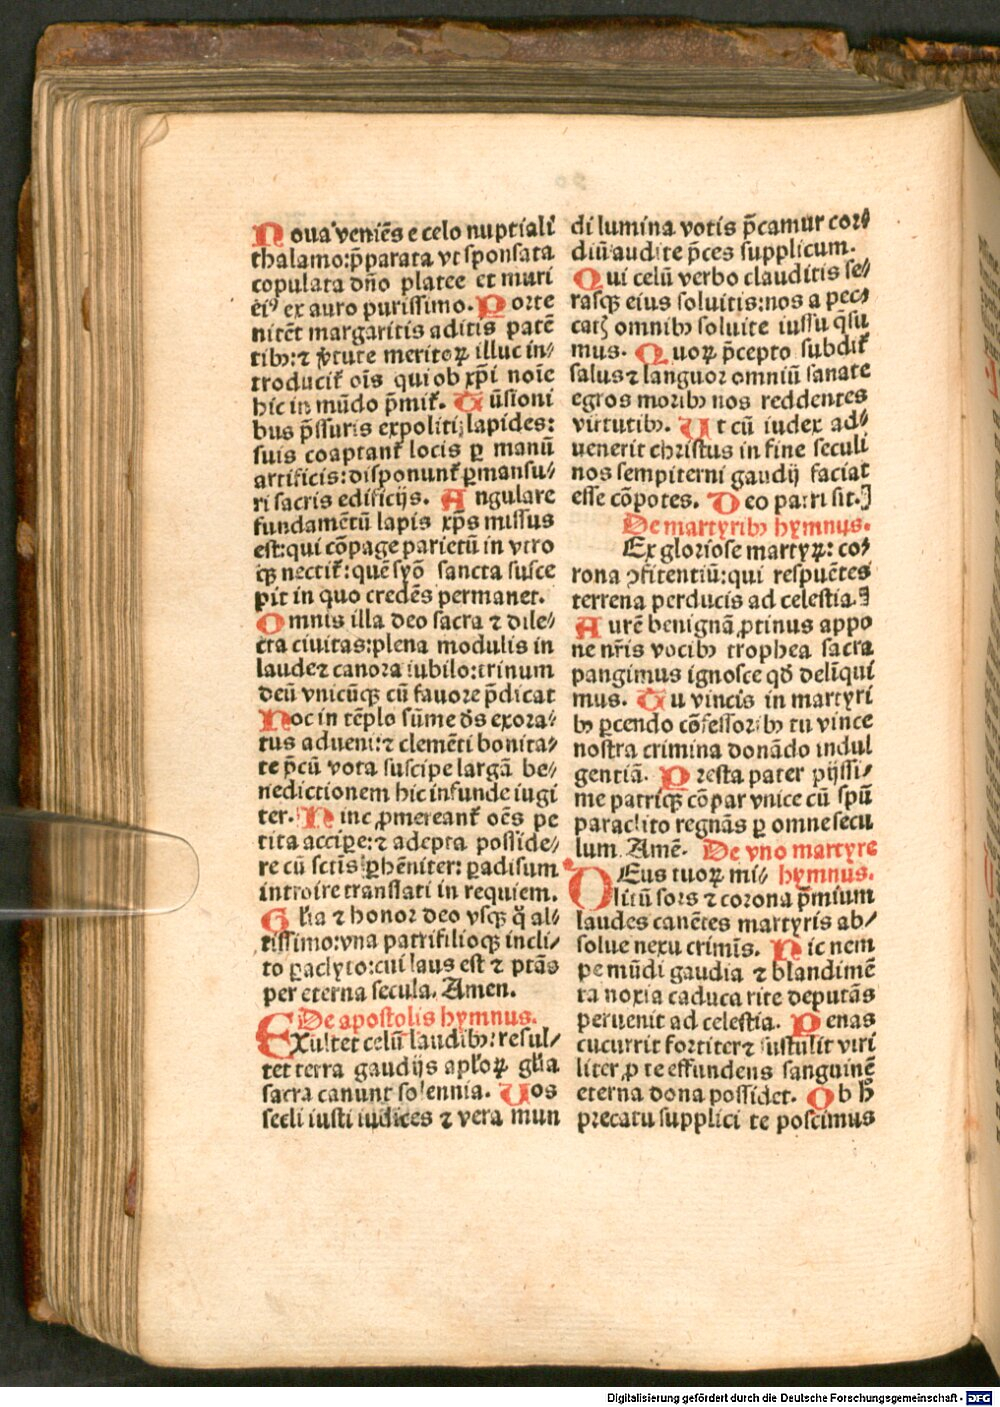 Noua veniēs e celo nuptiali
thalamo:p̄parata vt sponsata
copulata dn̄o platee et muri
ei⁹ ex auro purissimo. Porte
nitēt margaritis aditis patē
tibꝰ:⁊ v̓tute meritoꝝ illuc in⸗
troducit̄ oīs qui ob xp̄i noīe
hic in mūdo p̄mit̄. Tūsioni
bus p̄ssuris expoliti lapides:
suis coaptant̄ locis ꝑ manū
artificis:disponunt̄ ꝑmansu⸗
ri sacris edificijs. Angulare
fundamētū lapis xp̄s missus
est:qui cōpage parietū in vtro
qꝫ nectit̄:quē syō sancta susce
pit in quo credēs permanet.
Omnis illa deo sacra ⁊ dile⸗
cta ciuitas:plena modulis in
laude⁊ canora iubilo:trinum
deū vnicūqꝫ cū fauore p̄dicat
Hoc in tēplo sūme ds̄ exora⸗
tus adueni:⁊ clemēti bonita⸗
te p̄cū vota suscipe largā be⸗
nedictionem hic infunde iugi
ter. Hinc ꝓmereant̄ oēs pe
tita acciꝑe:⁊ adepta posside⸗
re cū sctīs ꝑhēniter: ꝑadisum
introire translati in requiem.
Gl̄ia ⁊ honor deo vsqꝫ q̊ al⸗
tissimo:vna patrifilioqꝫ incli⸗
to ꝑaclyto:cui laus est ⁊ ptās
per eterna secula. Amen.
De apostolis hymnus.
EXultet celū laudibꝰ:resul⸗
tet terra gaudijs apl̓oꝝ gl̄ia
sacra canunt solennia. Uos
secli iusti iudices ⁊ vera mun
di lumina votis p̄camur cor⸗
diū audite p̄ces supplicum.
Qui celū verbo clauditis se⸗
rasqꝫ eius soluitis:nos a pec⸗
catꝭ omnibꝰ soluite iussu q̄su
mus. Quoꝝ p̄cepto subdit̄
salus⁊ languor omniū sanate
egros moribꝰ nos reddentes
virtutibꝰ. Ut cū iudex ad⸗
uenerit christus in fine seculi
nos sempiterni gaudij faciat
esse cōpotes. Deo patri sit.
De martyribꝰ hymnus.
Ex gloriose martyꝝ: co⸗
rona ꝯfitentiū:qui respuētes
terrena perducis ad celestia.
Aurē benignā ꝓtinus appo
ne nr̄is vocibꝰ trophea sacra
pangimus ignosce qd̄ deliqui
mus. Tu vincis in martyri
bꝰ ꝑcendo cōfessoribꝰ tu vince
nostra crimina donādo indul
gentiā. Presta pater pijssi⸗
me patriqꝫ cōpar vnice cū spū
paraclito regnās ꝑ omne secu
lum. Amē. De vno martyre
DEus tuoꝝ mi⸗ hymnus.
litū sors ⁊ corona p̄mium
laudes canētes martyris ab⸗
solue nexu crimīs. Hic nem
pe mūdi gaudia ⁊ blandimē
ta noxia caduca rite deputās
peruenit ad celestia. Penas
cucurrit fortiter⁊ sustulit viri
liter ꝓ te effundens sanguinē
eterna dona possidet. Ob h̄
precatu supplici te poscimus
Digitalisierung gefördert durch die Deutsche Forschungsgemeinschaft - DFG